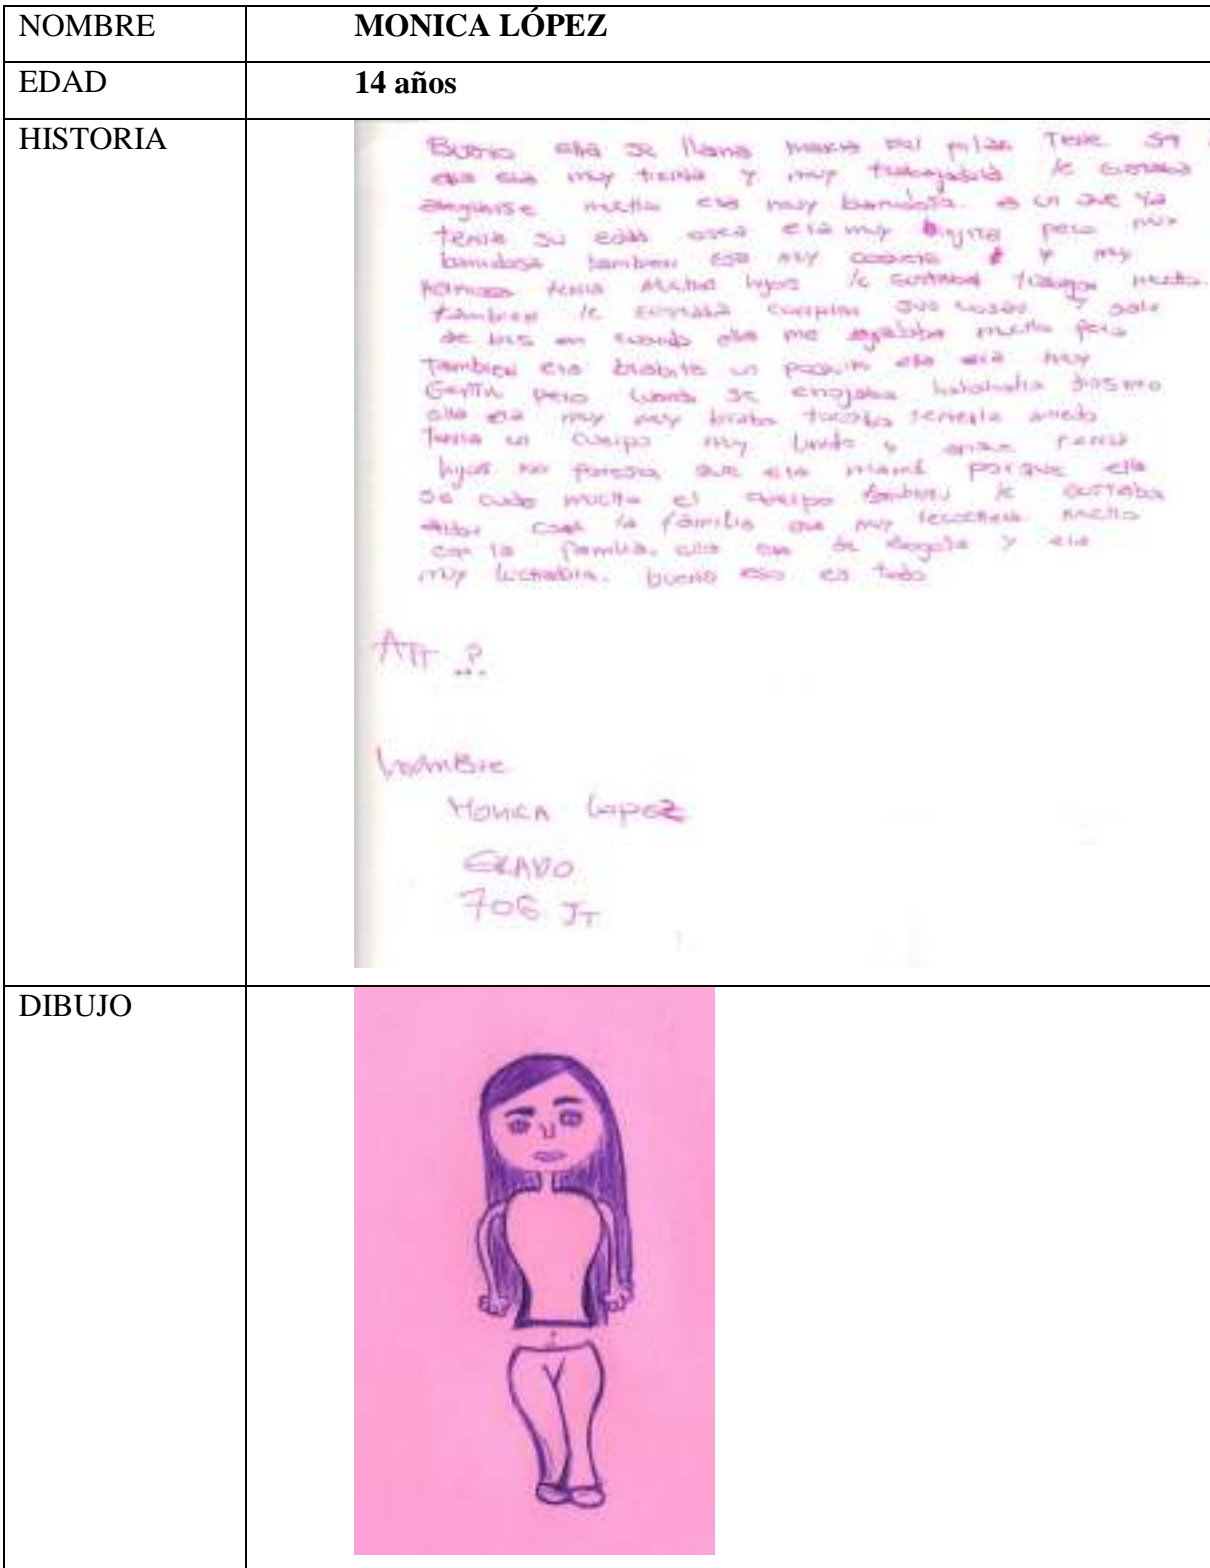 NOMBRE MONICA LÓPEZ
EDAD 14 años
HISTORIA
Bueno ella se llama maria del pilar Tiene 59
ella era muy tierna y muy trabajadora le gustaba
mucho era muy banidosa. a un que ya
tenia su edad osea era muy pero muy
banidosa tambien era muy y muy
hermosa tenia muchos hijos le gustaba trabajar mucho.
tambien le gustaba cumplir sus cosas y salir
de bes en cuando ella me mucho pero
tambien era brabita un poquito ella era muy
Gentil pero cuando se enojaba
ella era muy muy braba tocaba tenerle miedo
Tenia un cuerpo muy lindo y tenia
hijos no paresia que era mamá porque ella
se cuido mucho el cuerpo tambien le gustaba
con la familia era muy mucho
con la familia. ella era de Bogota y era
muy luchadora. bueno eso es todo
ATT ..?.
Nombre
Monica Lopez
GRADO
706 JT
DIBUJO